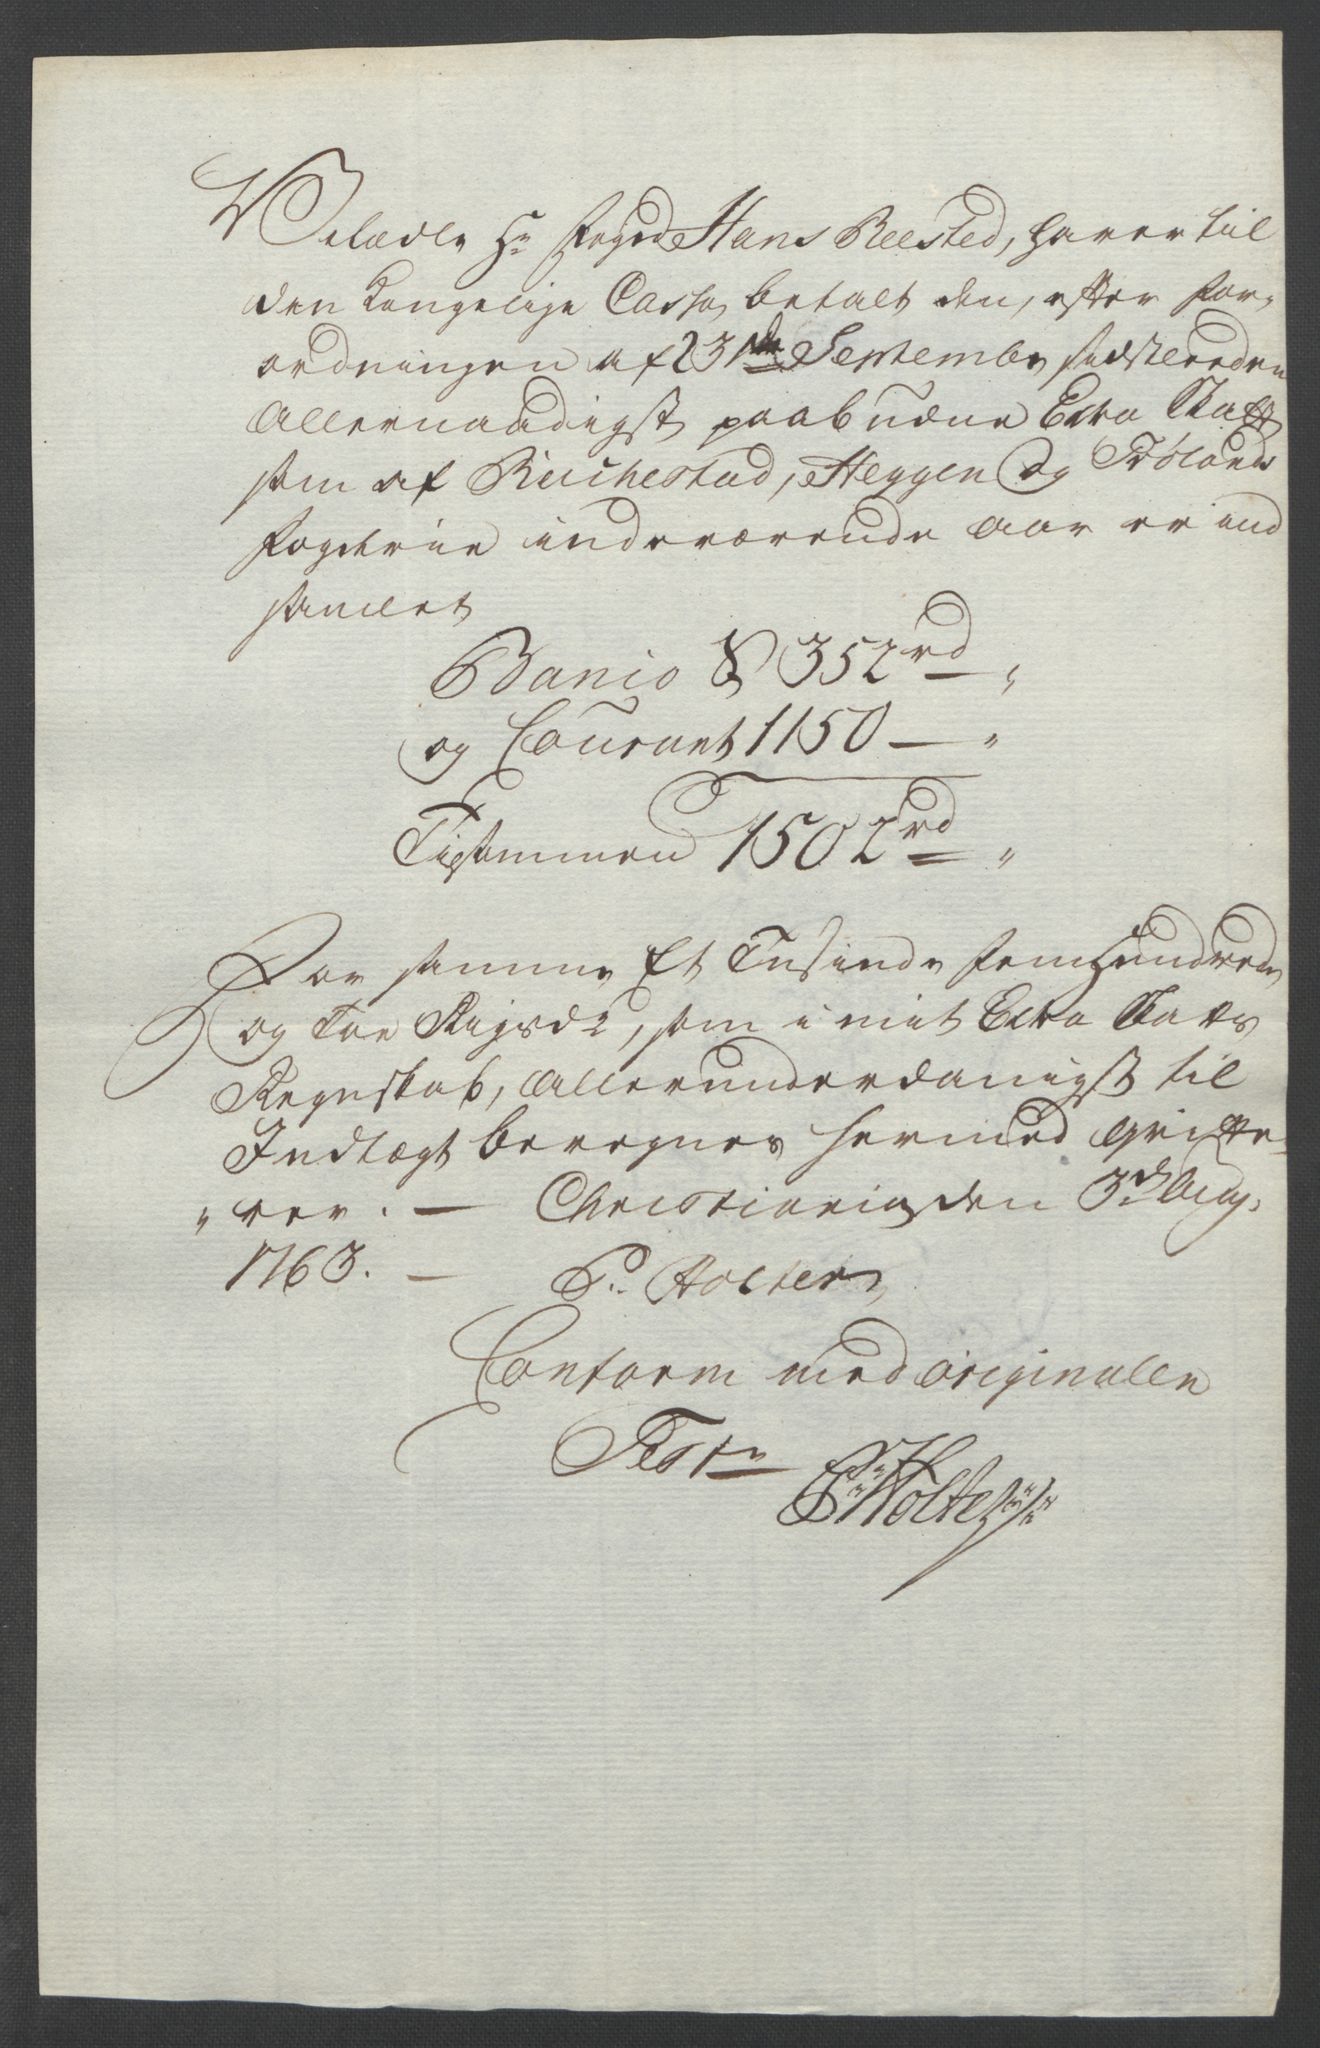 Velædle Hr Foged Hans Reested, haver til
den Kongelige Cassa betalt den, efter For-
ordningen af 23de Septembr sidstleeden
Allernaadigst paabudne Extra Skatt
som af Buchestad, Heggen og Frølands
Fogderie indeværende aar er ind
samlet
Banco S 352 rd — "
og Courant 1150 — "
Tilsammen 1502 rd "
For samme Et Tusinde Fem Hundrede
og Toe Rigsdr, som i mit Extra Skatts
Regnskab, Allerunderdanigst til
Indtægt beregnes hermed qvitte-
" rer. — Christiania den 3de Aug.
1763. — P. Holter
Conform med originalen
Test
P. Holter